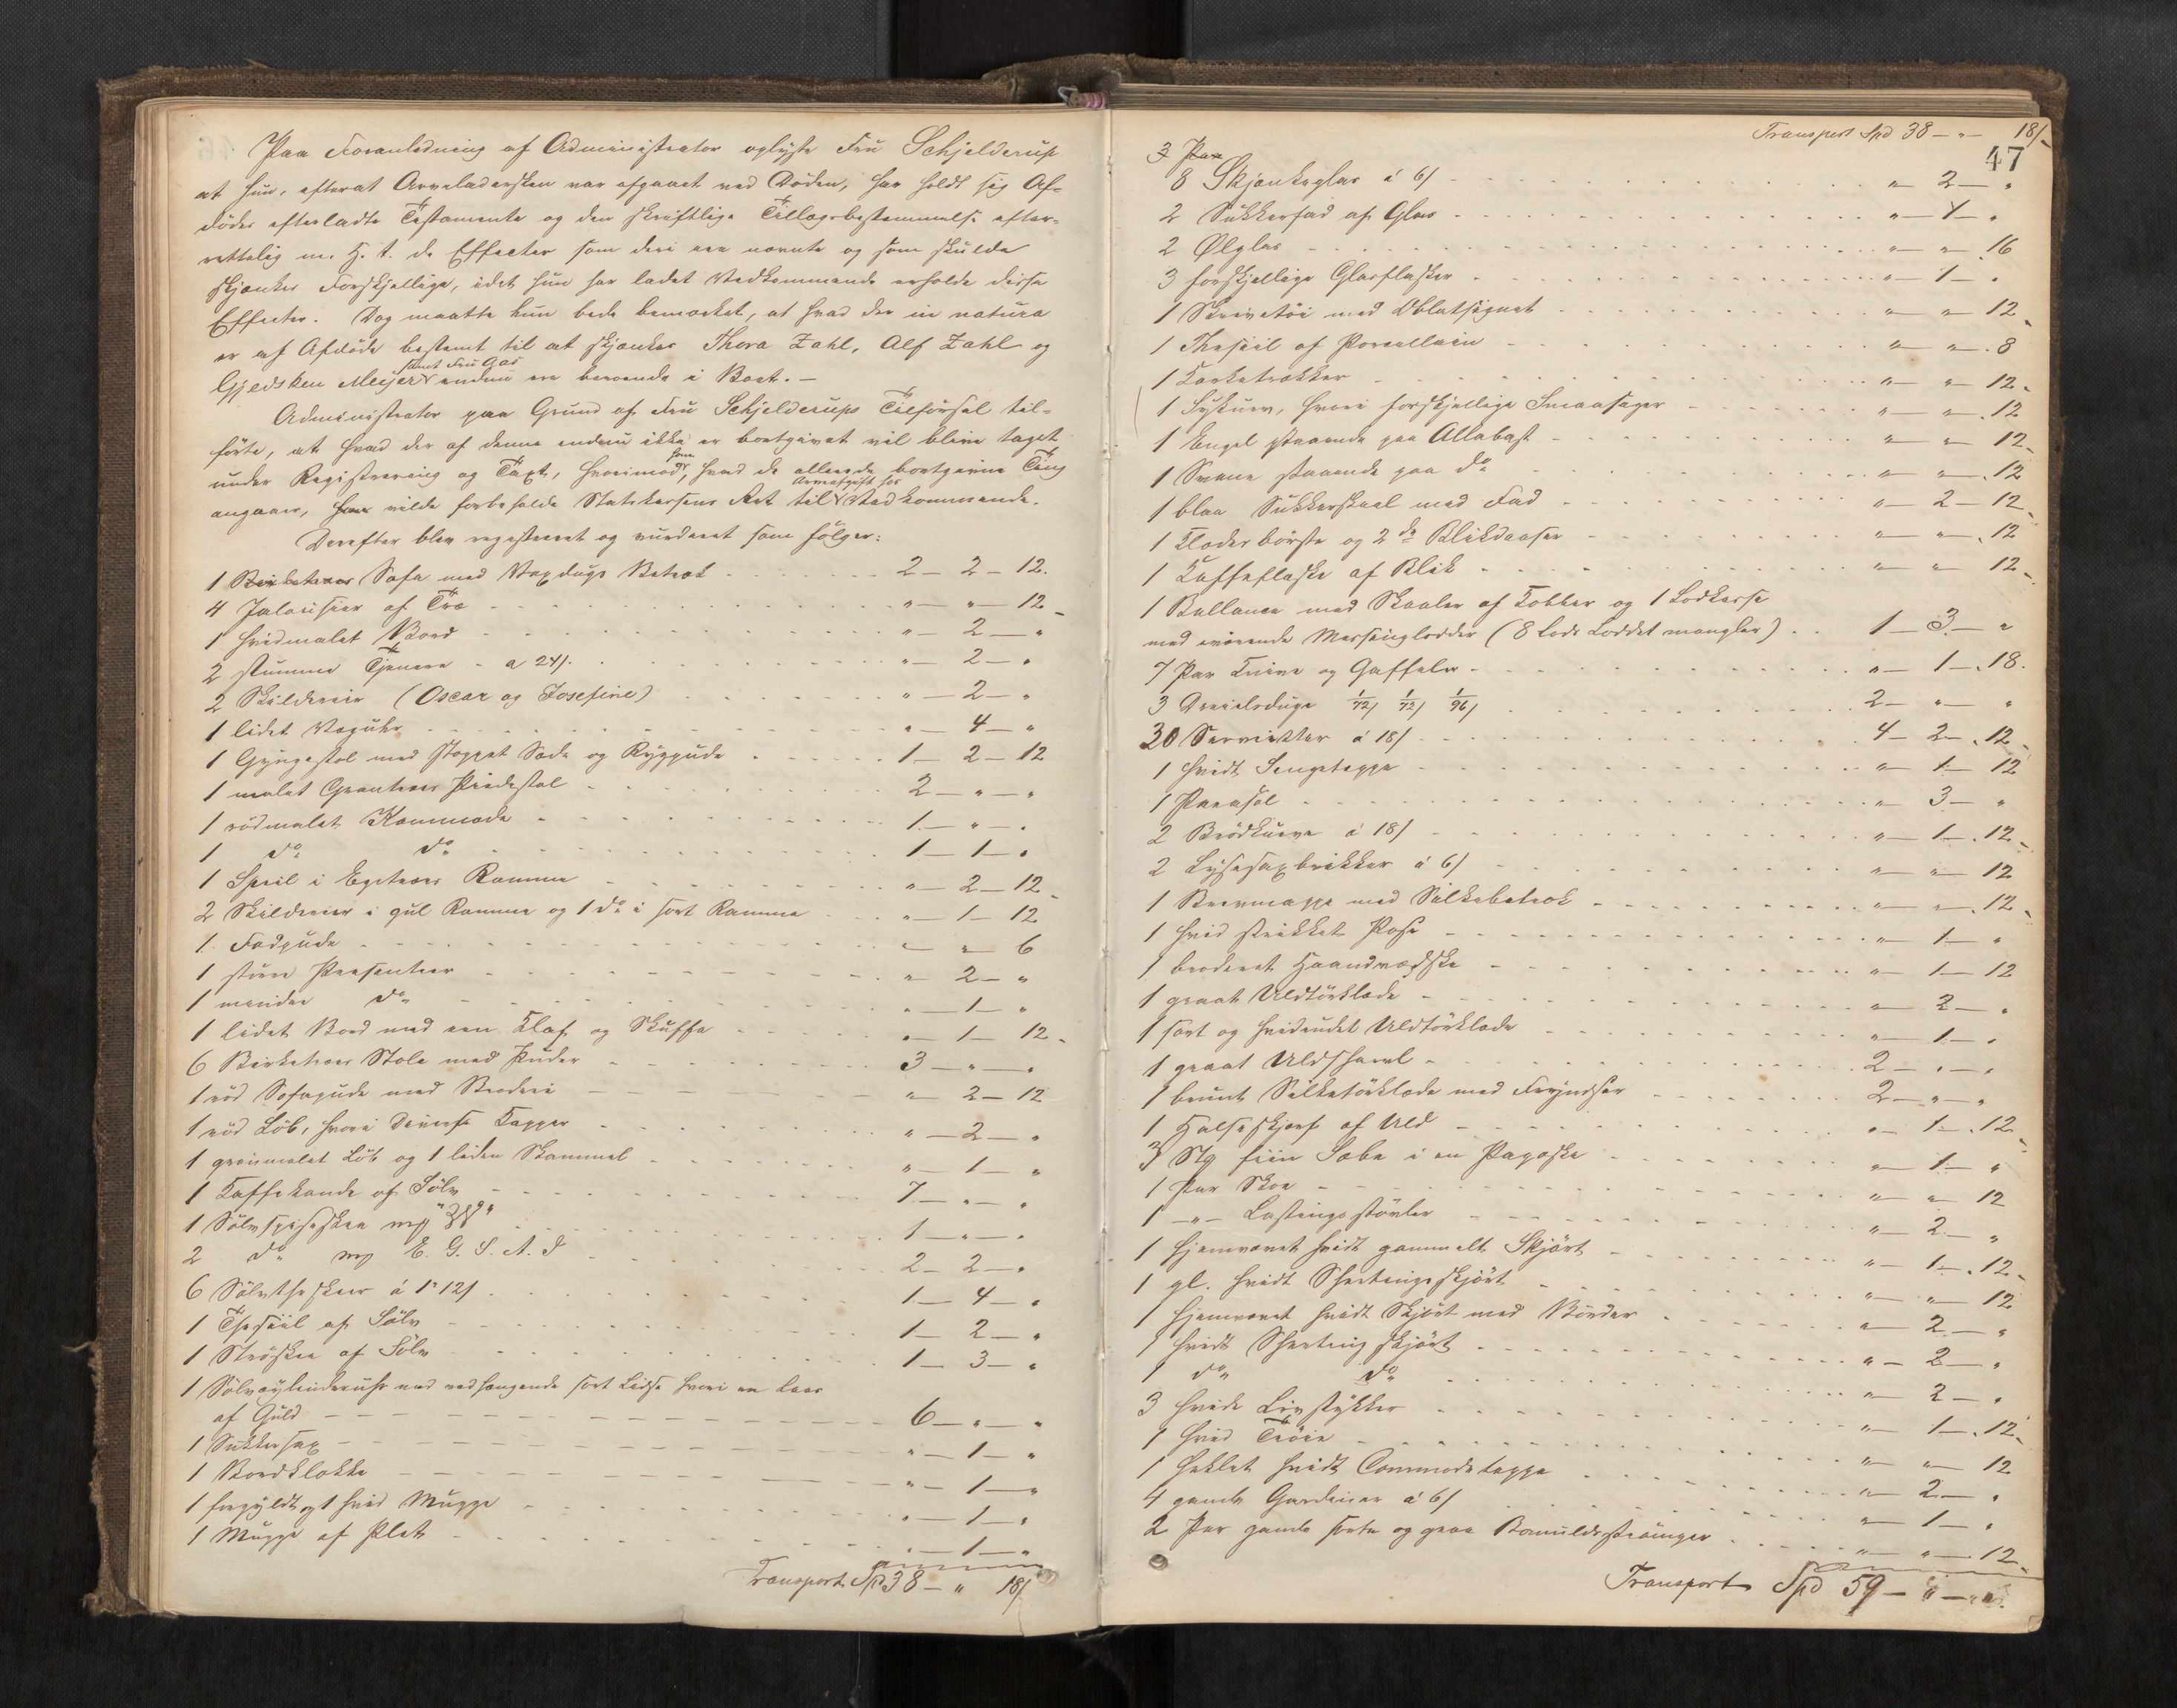 Paa Foranledning af Administrator oplyste Fru Schjelderup
at hun, efterat Arveladersken var afgaaet ved Döden, har holdt sig Af-
dödes efterladte Testamente og den skriftlige Tillægsbestemmelse efter-
rettelig m. H. t. de Effecter som deri ere nævnte og som skulde
skjænkes Forskjellige, idet hun har ladet Vedkommende erholde disse
Effecter. Dog maatte hun bede bemærket, at hvad der in natura
er af Afdöde bestemt til at skjænkes Thora Zahl, Alf Zahl og
samt Fru Gas
Gjedsken Meijer endnu ere beroende i Boet. —
Administrator paa Grund af Fru Schjelderups Tilförsel til-
förte, at hvad der af denne endnu ikke er bortgivet vil blive taget
under Registrering og Taxt, hvorimod han, hvad de allerede bortgivne Ting
Arveafgift hos
angaar, vilde forbeholde Statskassens Ret til Vedkommende.
Derefter blev registreret og vurderet som fölger:
1 Sofa med Voxdugs Betræk 2 - 2 - 12.
4 Jalousier af Træ " - " - 12
1 hvidmalet Bord " - 2 - "
2 stumme Tjenere a 24/ " - 2 - "
2 Skilderier (Oscar og Josefine) " - 2 - "
1 lidet Væguhr " - 4 - "
1 Gyngestol med stoppet Sæde og Rygpude 1 - 2 - 12
1 malet Grantræes Piedestal 2 - " - "
1 rödmalet Kommode 1 - " - "
1 do do 1 - 1 - "
1 Speil i Egetræes Ramme " - 2 - 12
2 Skilderier i gul Ramme og 1 do i sort Ramme " - 1 - 12
1 Fodpude " - " - 6
1 större Præsenteer " - 2 - "
1 mindre do " - 1 - "
1 lidet Bord med een Klaf og Skuffe " - 1 - 12
6 Birketræes Stole med Puder 3 - " - "
1 röd Sofapude med Broderi " - 2 - 12
1 röd Löb, hvori Diverse Kapper " - 2 - "
1 grönmalet Löb og 1 liden Skammel " - 1 - "
1 Kaffekande af Sölv 7 - " - "
1 Sölvspiseskee mrk 1 - " - "
2 do mrk E. G. S. A. D 2 - 2 - "
6 Sölvtheskeer á 1" 12/ 1 - 4 - "
1 Thesiil af Sölv 1 - 2 - "
1 Ströskee af Sölv 1 - 3 - "
1 Sölvcylinderuhr med vedhængende sort Lidse hvori en Laas
af Guld 6 - " - "
1 Sukkersax " - 1 - "
1 Bordklokke " - 1 - "
1 forgyldt og 1 hvid Mugge " - 1 - "
1 Mugge af Plet " - 1 - "
Transport Spd 38 - " 18/
Transport Spd 38 - " - 18/
47
3 Par
8 Skjænkeglas á 6/ " - 2 - "
2 Sukkerfad af Glas " - 1 - "
2 Ølglas " - " - 16
3 forskjellige Glasflasker " - 1 - "
1 Skrivetöi med Oblatsignet " - " - 12
1 Thesiil af Porcellain " - " - 8
1 Korketrækker " - " - 12
1 Sykurv, hvori forskjellige Smaasager " - " - 12
1 Engel staaende paa Allabast " - " - 12
1 Svane staaende paa do " - " - 12
1 blaa Sukkerskaal med Fad " - 2 - 12
1 Klædesbörste og 2de Blikdaaser " - " - 12
1 Kaffeflaske af Blik " - " - 12
1 Ballance med Skaaler af Kobber og 1 Lodkasse
med værende Messinglodder (8 Lods Loddet mangler) 1 - 3 - "
7 Par Knive og Gaffeler " - 1 - 18
3 Dreielsduge 1/72/ 1/72/ 1/96/ 2 - " - "
30 Servietter á 18/ 4 - 2 - 12
1 hvidt Sengeteppe " - 1 - 12
1 Parasol " - 3 - "
2 Brödkurve á 18/ " - 1 - 12
2 Lysesaxbrikker á 6/ " - " - 12
1 Brevmappe med Silkebetræk " - " - 12
1 hvid strikket Pose " - 1 - "
1 broderet Haandvædske " - 1 - 12
1 graat Uldtörklæde " - 2 - "
1 sort og hvidrudet Uldtörklæde " - 1 - "
1 graat Uldshawl 2 - " - "
1 brunt Silketörklæde med Fryndser 2 - " - "
1 Halsskjærf af Uld " - 1 - 12
3 Stk fiin Sæbe i en Papæske " - 1 - "
1 Par Skoe " - " - 12
1 -"- Lastingsstövler " - 2 - "
1 hjemvævet hvidt gammelt Skjört " - 1 - 12
1 gl. hvidt Shertingsskjört " - " - 12
1 hjemvævet hvidt Skjört med Border " - 2 - "
1 hvidt Shertingskjört " - 2 - "
1 do do " - 2 - "
3 hvide Livstykker " - 1 - 12
1 hvid Tröie " - " - 12
1 heklet hvidt Commodeteppe " - 2 - "
4 gamle Gardiner á 6/ " - 1 - "
2 Par gamle sorte og graa Bomuldsströmper " - " - 12
Transport Spd 59 - " - "